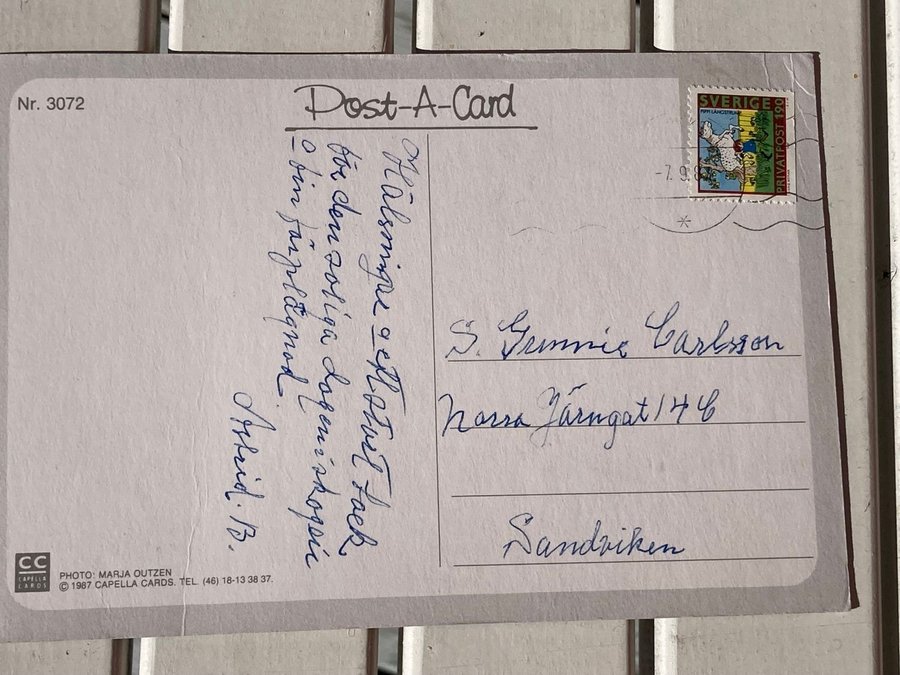 Nr. 3072
Post-A-Card
SVERIGE
PIPPI LÅNGSTRUMP
PRIVATPOST 190
-7.9.8
Hälsningar o ett stort tack
för den soliga dagen i skogen
o fin förplägnad.
Astrid. B.
S. Gunnie Carlsson
Norra Järngat 14 C
Sandviken
CC
CAPELLA
CARDS
PHOTO: MARJA OUTZEN
© 1987 CAPELLA CARDS. TEL. (46) 18-13 38 37.